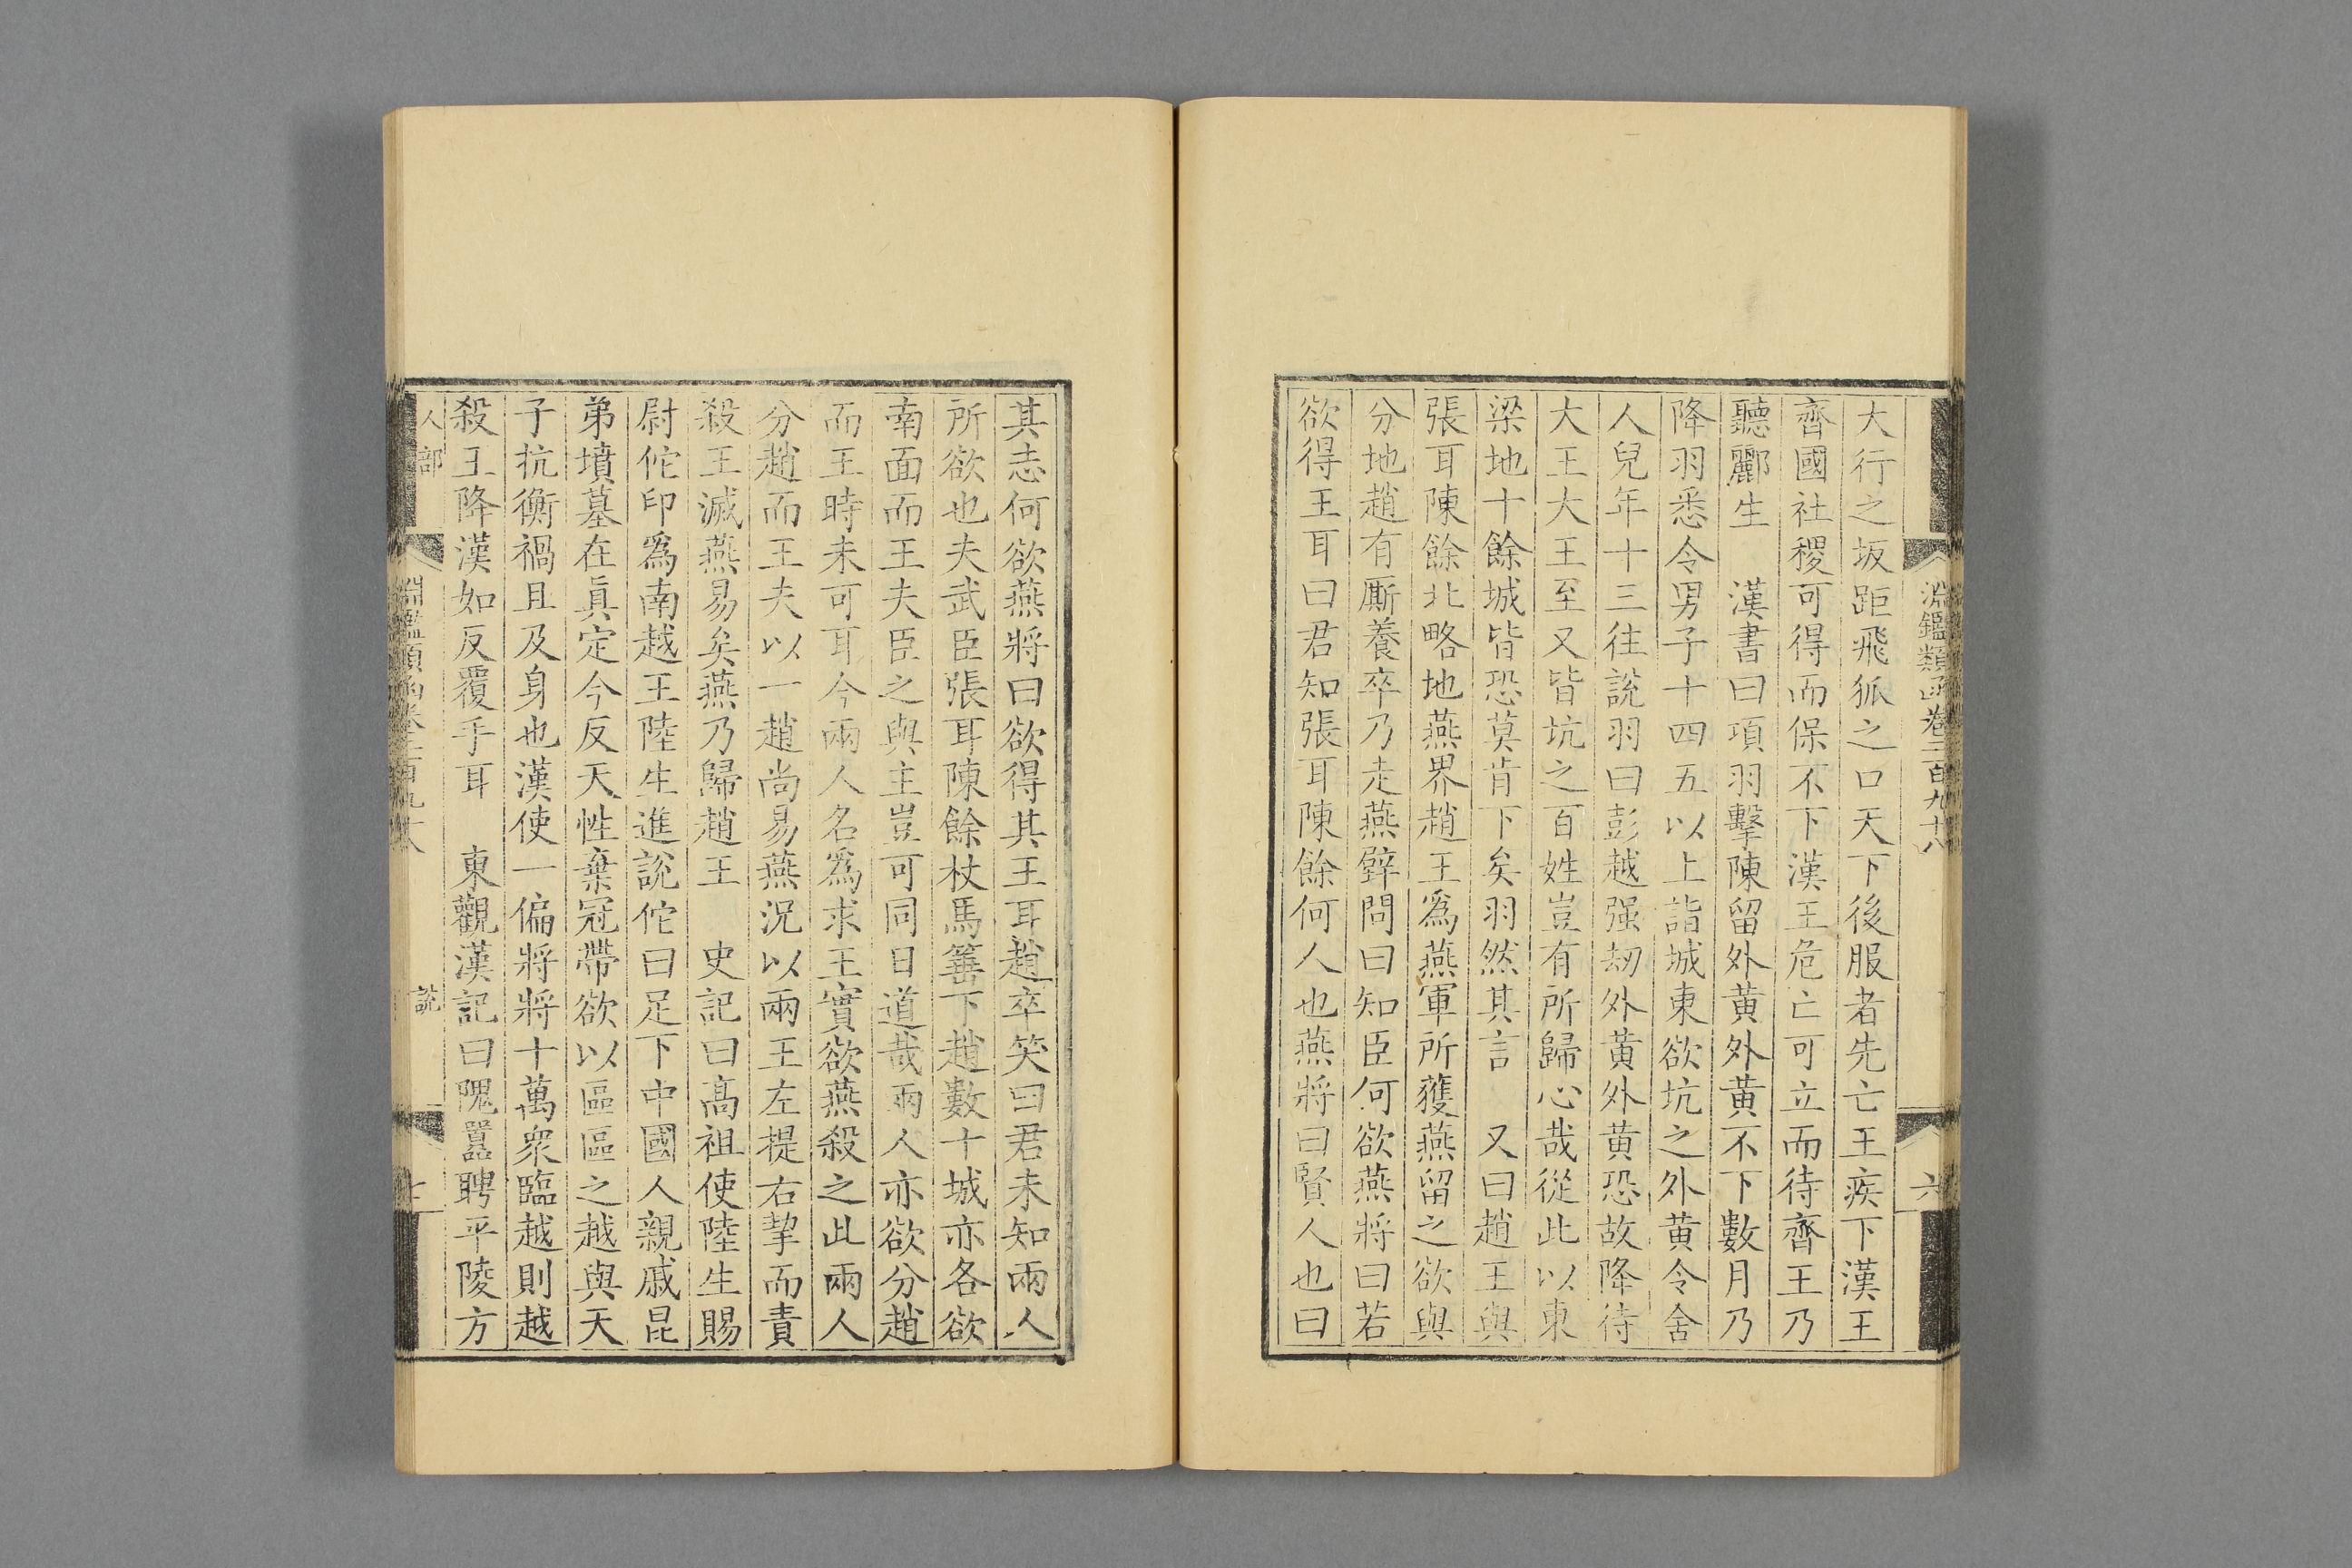 淵鑑類函卷二百九十八
六
大行之坂距飛狐之口天下後服者先亡王疾下漢王
齊國社稷可得而保不下漢王危亡可立而待齊王乃
聽酈生　漢書曰項羽擊陳留外黃外黃不下數月乃
降羽悉令男子十四五以上詣城東欲坑之外黃令舍
人兒年十三往說羽曰彭越强刼外黃外黃恐故降待
大王大王至又皆坑之百姓豈有所歸心哉從此以東
梁地十餘城皆恐莫肯下矣羽然其言　又曰趙王與
張耳陳餘北略地燕界趙王爲燕軍所獲燕留之欲與
分地趙有厮養卒乃走燕壁問曰知臣何欲燕將曰若
欲得王耳曰君知張耳陳餘何人也燕將曰賢人也曰
其志何欲燕將曰欲得其王耳趙卒笑曰君未知兩人
所欲也夫武臣張耳陳餘杖馬箠下趙數十城亦各欲
南面而王夫臣之與主豈可同日道哉兩人亦欲分趙
而王時未可耳今兩人名爲求王實欲燕殺之此兩人
分趙而王夫以一趙尚易燕況以兩王左提右挈而責
殺王滅燕易矣燕乃歸趙王　史記曰高祖使陸生賜
尉佗印爲南越王陸生進說佗曰足下中國人親戚昆
弟墳墓在眞定今反天性棄冠帶欲以區區之越與天
子抗衡禍且及身也漢使一偏將將十萬衆臨越則越
殺王降漢如反覆手耳　東觀漢記曰隗囂聘平陵方
人部
淵鑑類函卷二百九十八
說
七